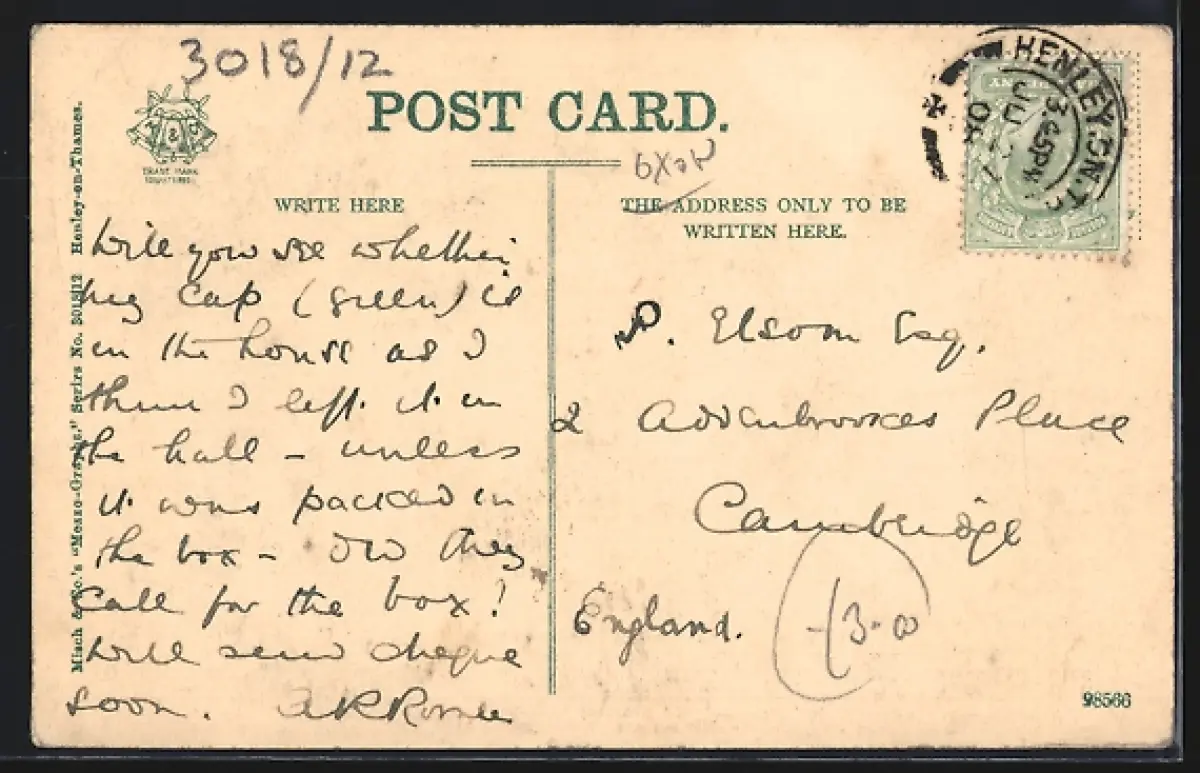 3018/12
POST CARD.
TRADE MARK
OXON
WRITE HERE
THE ADDRESS ONLY TO BE
WRITTEN HERE.
HENLEY.ON.T
3.45PM
JU
Misch & Co.'s "Mezzo-Graphs." Series No. 3018/12 Henley-on-Thames.
Will you see whether
my cap (green) is
in the house as I
think I left it in
the hall - unless
it was packed in
the box - Did they
call for the box!
Will send cheque
soon.
P. Elsom Esq.
2 Addenbrookes Place
Cambridge
England.
98566